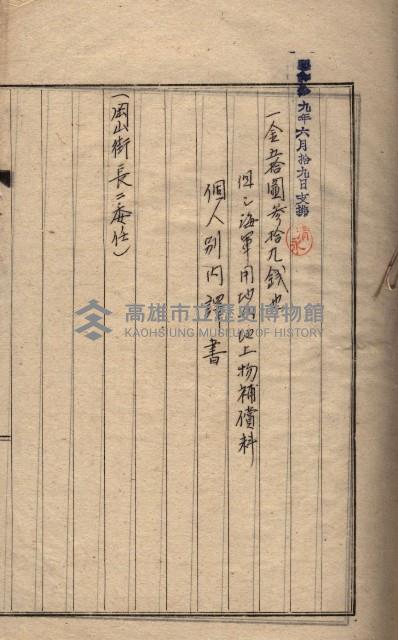 昭和拾九年六月拾九日支拂
清永
一金五拾圓參拾九錢也
但シ海軍用地內地上物補償料
個人別內譯書
(岡山街長ニ委任)
高雄市立歷史博物館
KAOHSIUNG MUSEUM OF HISTORY